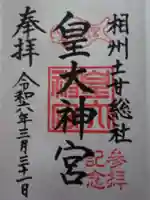 相州土甘総社
皇大神宮
参拝記念
奉拝
令和六年三月三十一日